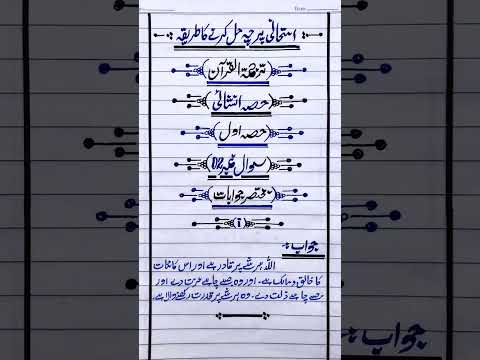 امتحانی پرچہ حل کرنے کا طریقہ
ترجمۃ القرآن
حصہ انشائی
حصہ اول
سوال نمبر 02
مختصر جوابات
i
جواب:
اللہ ہر شے پر قادر ہے اور اس کائنات
کا خالق و مالک ہے۔ اور وہ جسے چاہے عزت دے اور
جسے چاہے ذلت دے۔ وہ ہر شے پر قدرت رکھنے والا ہے۔
جواب: